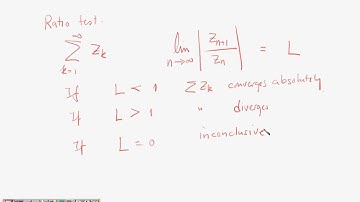 Ratio test.
∞
∑ z_k lim_{n→∞} | z_{n+1} / z_n | = L
k=1
If L < 1 ∑ z_k converges absolutely
If L > 1 " diverges
If L = 0 inconclusive